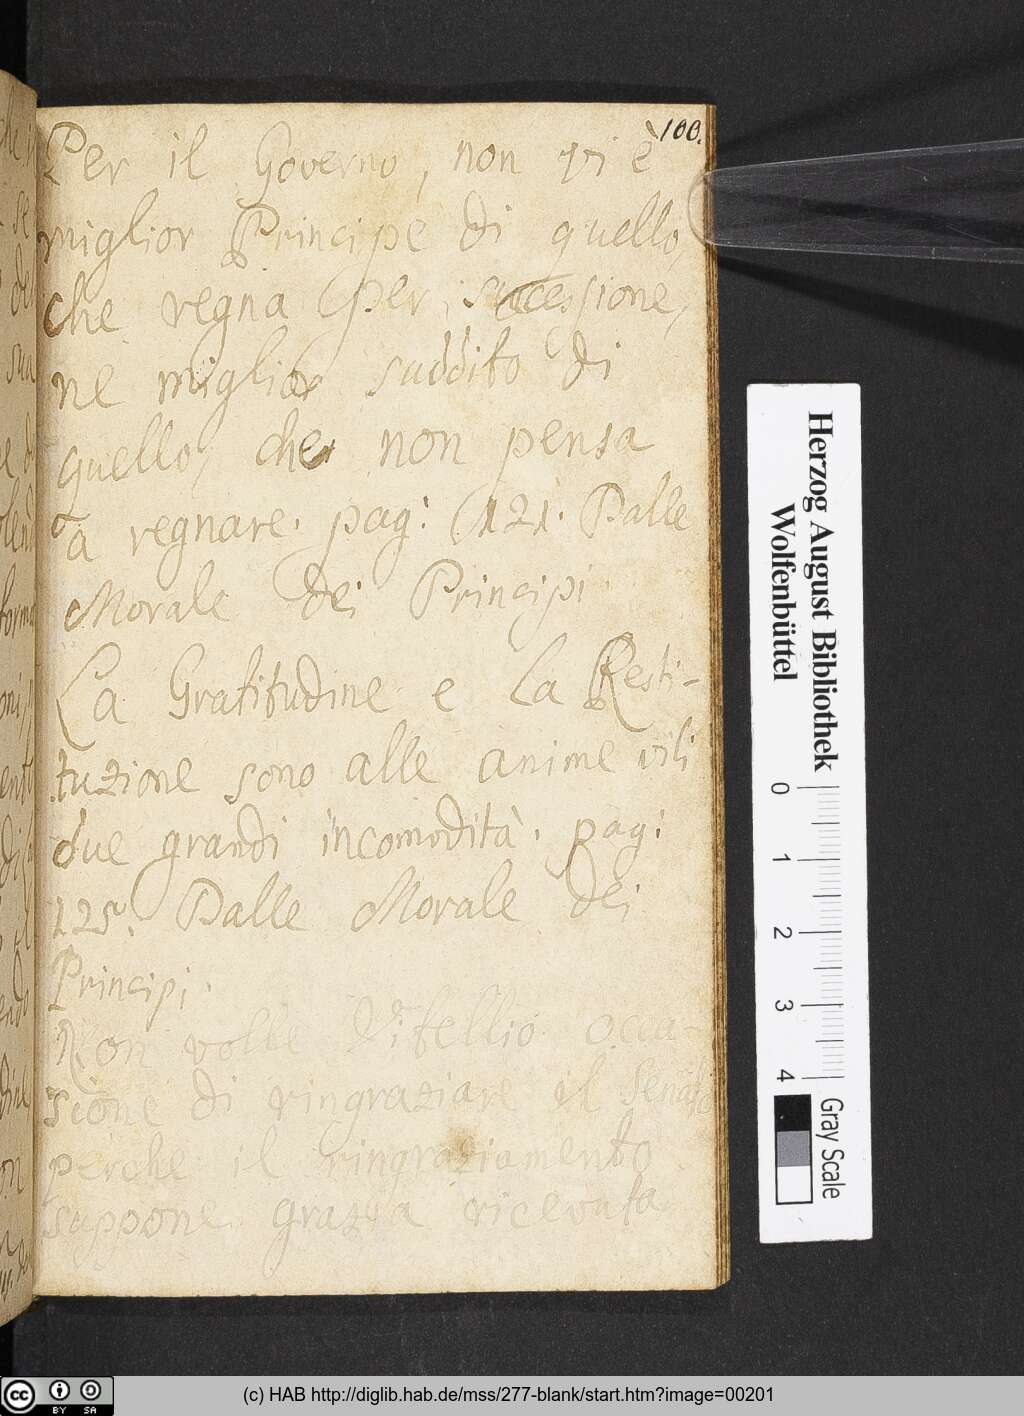 100.
Per il Governo, non vi è
miglior Principe di quello,
che regna per successione,
ne miglior suddito di
quello, che non pensa
a regnare. pag: 121. Dalle
Morale dei Principi
La Gratitudine e la Resti-
tuzione sono alle anime vili
due grandi incomodità. pag:
125. Dalle Morale dei
Principi.
Non volle Vitellio occa-
sione di ringraziare il Senato
perche il ringraziamento
suppone grazia ricevuta
Herzog August Bibliothek
Wolfenbüttel
0 1 2 3 4
Gray Scale
(c) HAB http://diglib.hab.de/mss/277-blank/start.htm?image=00201
cc BY SA